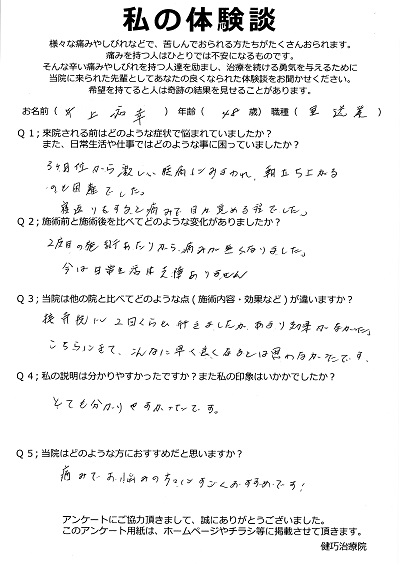 私の体験談
様々な痛みやしびれなどで、苦しんでおられる方たちがたくさんおられます。
痛みを持つ人はひとりでは不安になるものです。
そんな辛い痛みやしびれを持つ人達を励まし、治療を続ける勇気を与えるために
当院に来られた先輩としてあなたの良くなられた体験談をお聞かせください。
希望を持てると人は奇跡の結果を見せることがあります。
お名前( 井上和幸 ) 年齢( 48 歳) 職種( 運送業 )
Q1;来院される前はどのような症状で悩まれていましたか?
また、日常生活や仕事ではどのような事に困っていましたか?
3ヶ月位から激しい腰痛におそわれ、朝立ち上がる
のも困難でした。
寝返りをすると痛みで目が覚める程でした。
Q2;施術前と施術後を比べてどのような変化がありましたか?
2度目の施術あたりから、痛みが無くなりました。
今は日常生活は支障ありません
Q3;当院は他の院と比べてどのような点(施術内容・効果など)が違いますか?
接骨院に2回くらい行きましたが、あまり効果がなかった。
こちらにきて、こんなに早く良くなるとは思わなかったです。
Q4;私の説明は分かりやすかったですか?また私の印象はいかかでしたか?
とても分かりやすかったです。
Q5;当院はどのような方におすすめだと思いますか?
痛みでお悩みの方々にすごくおすすめです!
アンケートにご協力頂きまして、誠にありがとうございました。
このアンケート用紙は、ホームページやチラシ等に掲載させて頂きます。
健巧治療院